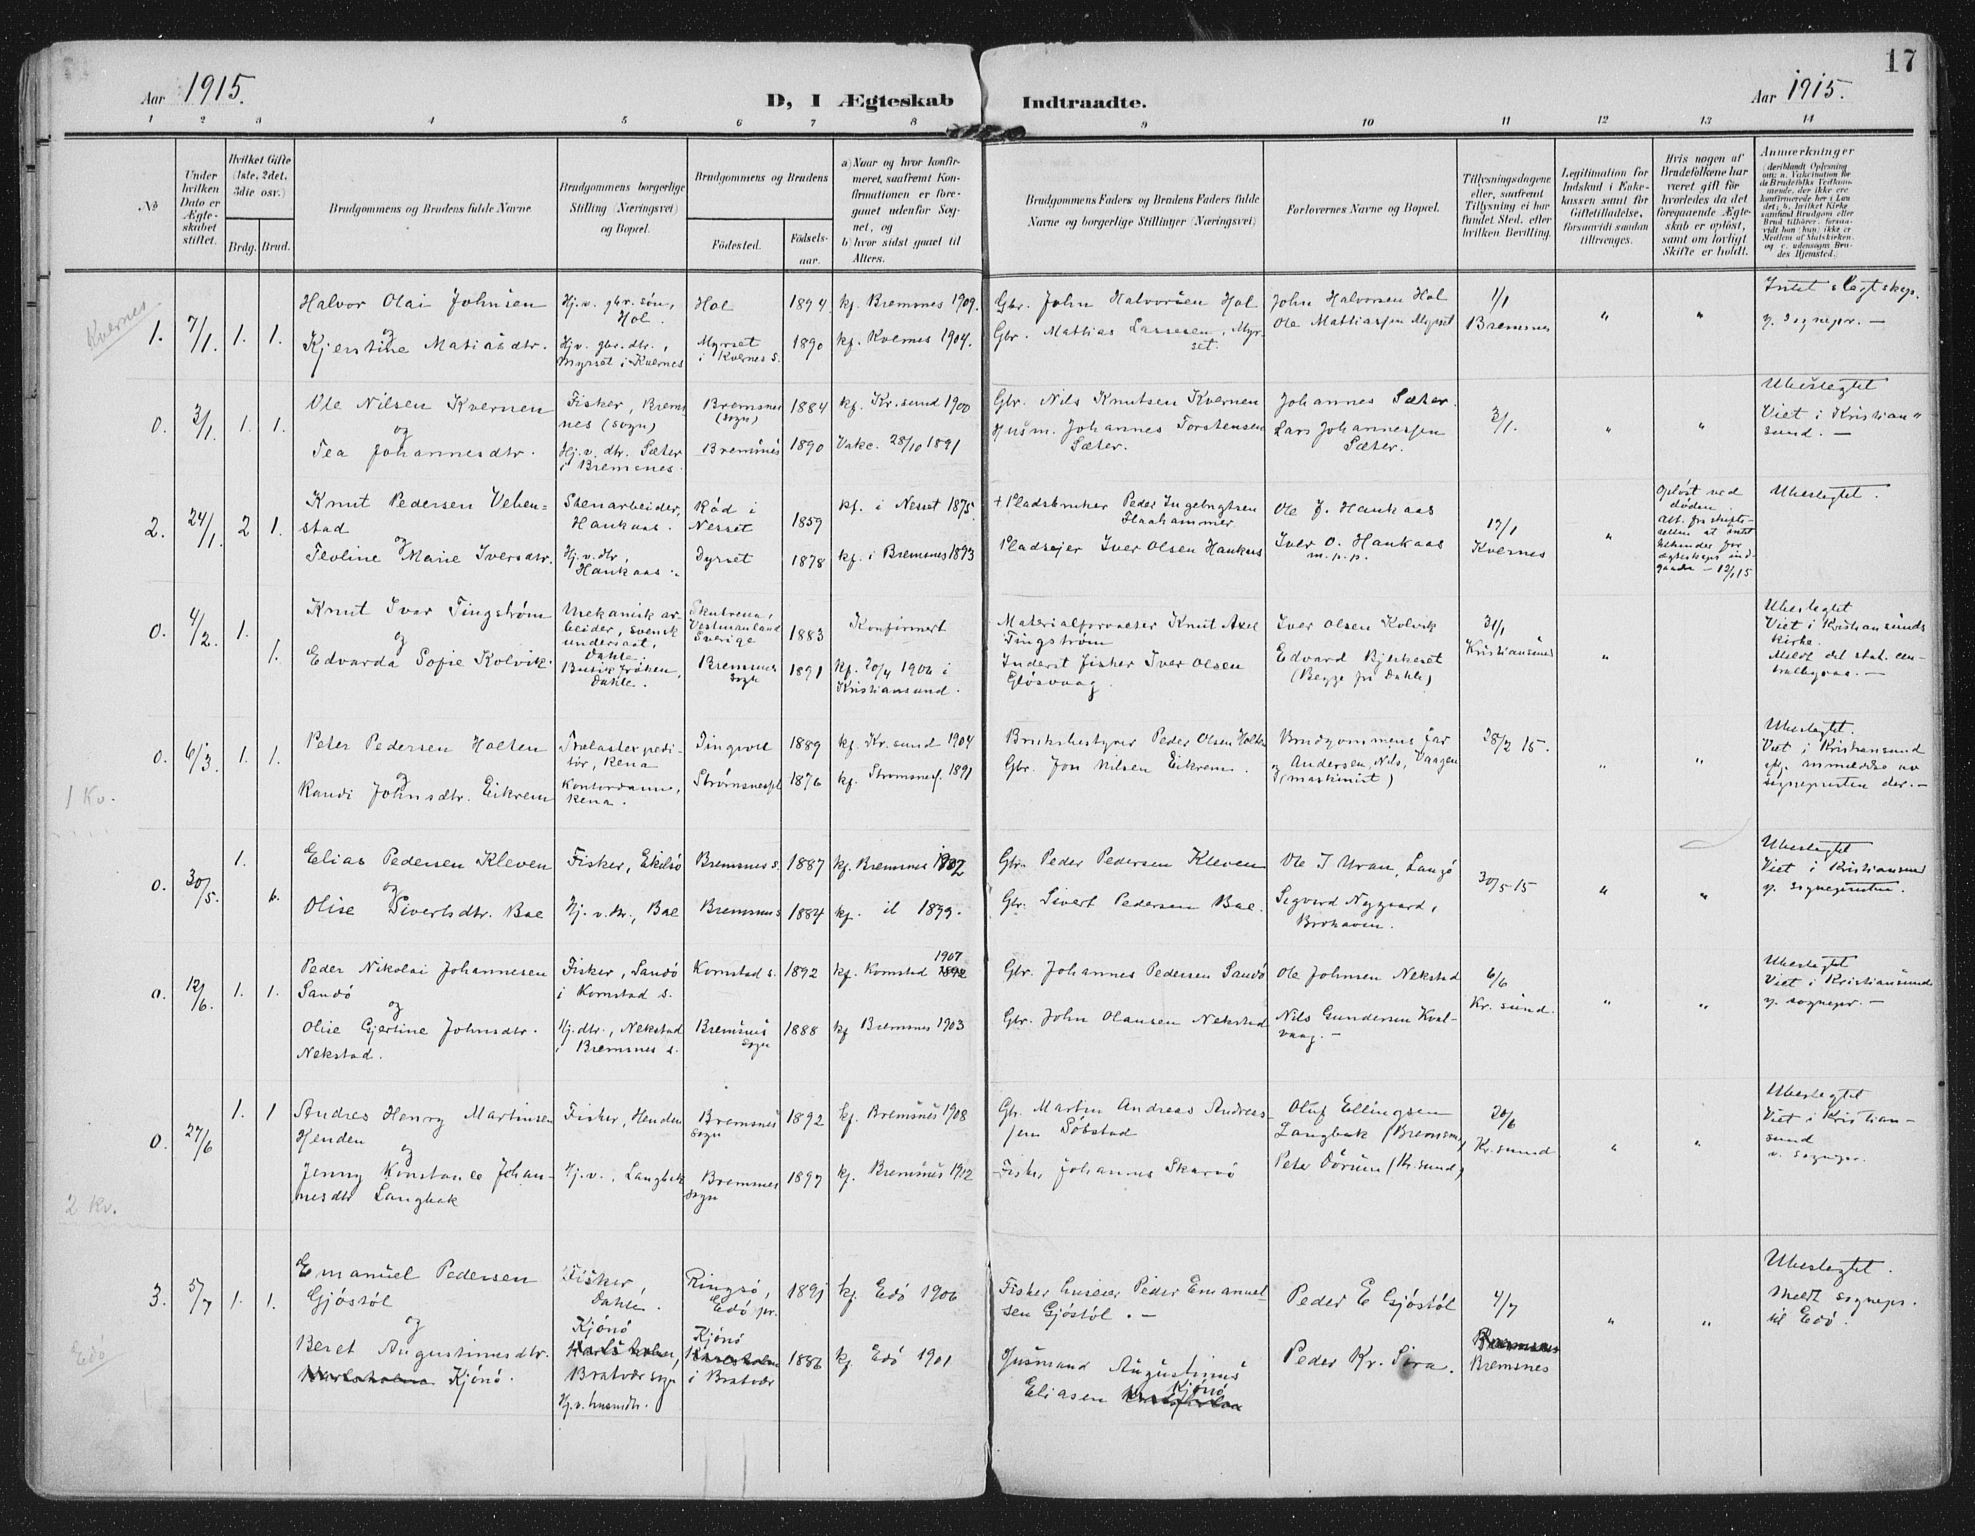 17
Aar 1915.
D, I Ægteskab Indtraadte.
Aar 1915.
1 2 3 4 5 6 7 8 9 10 11 12 13 14
No
Under hvilken Dato er Ægteskabet stiftet.
Hvilket Gifte (1ste, 2det, 3die osv.)
Brdg. Brud.
Brudgommens og Brudens fulde Navne.
Brudgommens borgerlige Stilling (Næringsvei) og Bopæl.
Brudgommens og Brudens
Födested.
Födselsaar.
a) Naar og hvor konfirmeret, saafremt Konfirmationen er foregaaet udenfor Sognet, og
b) hvor sidst gaaet til Alters.
Brudgommens Faders og Brudens Faders fulde Navne og borgerlige Stillinger (Næringsvei)
Forlovernes Navne og Bopæl.
Tillysningsdagene eller, saafremt Tillysning ei har fundet Sted, efter hvilken Bevilling.
Legitimation for Indskud i Enkekassen samt for Giftetilladelse, forsaavidt saadan tiltrænges.
Hvis nogen af Brudefolkene har været gift för hvorledes da det foregaaende Ægteskab er oplöst, samt om lovligt Skifte er holdt.
Anmærkninger
(deriblandt Oplysning om: a. Vakcination for de Brudefolks Vedkommende, der ikke ere konfirmerede her i Landet; b. hvilket Kirkesamfund Brudgom eller Brud tilhörer, forsaavidt han (hun) ikke er Medlem af Statskirken, og c. udensogns Brudes Hjemsted.)
Kvernes.
1. 7/1. 1. 1.
Halvor Olai Johnsen
og
Kjerstine Matiasdtr.
Hj.v. gbr. søn, Hol.
Hj.v. gbr. dtr., Myrset i Kvernes
Hol
Myrset i Kvernes s.
1894
1890
kf. Bremsnes 1909.
kf. Kvernes 1904.
Gbr. John Halvorsen Hol
Gbr. Mattias Lassesen, Myrset.
John Halvorsen Hol
Ole Mattiassen Myrset
1/1
Bremsnes
" "
Intet slegtskap.
v. sognepr. —
0. 3/1. 1. 1.
Ole Nilsen Kvernen
og
Tea Johannesdtr.
Fisker, Bremsnes (sogn)
Hj.v. dtr. Sæter i Bremsnes.
Bremsnes (sogn)
Bremsnes
1884
1890
kf. Kr.sund 1900
Vakc. 28/10 1891
Gbr. Nils Knutsen Kvernen
Husm. Johannes Torstensen Sæter.
Johannes Sæter.
Lars Johannessen Sæter.
3/1.
" "
Ubeslegtet
Viet i Kristiansund. —
2. 24/1. 2 1.
Knut Pedersen Vebenstad
og
Teoline Marie Iversdtr.
Stenarbeider, Haukaas.
Hj.v. dtr, Haukaas
Rød i Nesset
Dyrset
1859
1878
kf. i Nesset 1875.
kf. i Bremsnes 1893
+ Pladsbruker Peder Ingebrigtsen Flaahammer
Pladsejer Iver Olsen Haukaas
Ole J. Haukaas
Iver O. Haukaas
m.p.p.
17/1
Kvernes
"
Opløst ved døden.
Att. fra skifteretten at intet er hinder for ægteskaps indgaaelse — 12/1 15
Ubeslegtet.
0. 4/2. 1. 1.
Knut Ivar Tingstrøm
og
Edvarda Sofie Kolvik.
Mekanisk arbeider, svensk undersaat, Dahle.
Butikfrøken, Dahle.
Vestmanland Sverige
Bremsnes sogn
1883
1891
Konfirmert
kf. 20/4 1906 i Kristiansund.
Materialforvalter Knut Axel Tingstrøm
Inderst Fisker Iver Olsen Gløsvaag.
Iver Olsen Kolvik
Edvard Bjerkeset
(Begge fra Dahle)
31/1
Kristiansund
"
Ubeslegtet
Viet i Kristiansunds kirke.
Meldt det stat. centralbyraa. —
0. 6/3. 1. 1.
Peter Pedersen Holten
og
Randi Johnsdtr. Eikrem
Trælastexpeditør, Rena
Kontordame, Rena.
Tingvoll
Strømsnes
1889
1876
kf. Kr.sund 1904
kf. Strømsnes 1891
Bruksbestyrer Peder Olsen Holten
Gbr. Jon Nilsen Eikrem.
Brudgommens far
og Andersen, Nils, Vaagen
(maskinist)
28/2 15.
" "
Ubeslegtet.
Viet i Kristiansund
eft. anmeldelse av sognepresten der. —
1 Kv.
0. 30/5. 1. 1.
Elias Pedersen Kleven
og
Olise Sivertsdtr. Bae
Fisker, Ekilsø
Hj.v. dtr., Bae
Bremsnes s.
Bremsnes
1887
1884
kf. Bremsnes 1902
kf. il 1899.
Gbr. Peder Pedersen Kleven
Gbr. Sivert Pedersen Bae.
Ole I Uran, Langø
Sigvard Nygaard, Brohaven.
30/5 15
" "
Ubeslegtet
Viet i Kristiansund
v. sognepresten.
0. 12/6. 1. 1.
Peder Nikolai Johannesen Sandø
og
Olise Gjertine Johnsdtr. Nekstad.
Fisker, Sandø i Kornstad s.
Hj.dtr., Nekstad i Bremsnes s.
Kornstad s.
Bremsnes sogn
1892
1888
kf. Kornstad 1907 1892
kf Bremsnes 1903
Gbr. Johannes Pedersen Sandø
Gbr. John Olausen Nekstad
Ole Johnsen Nekstad
Nils Gundersen Kvalvaag. —
6/6
Kr. sund.
" "
Ubeslegtet
Viet i Kristiansund
v. sognepr. —
0. 27/6 1. 1
Andres Henry Martinsen Henden
og
Jenny Konstance Johannesdtr Langbak
Fisker, Henden
Hj.v., Langbak
Bremsnes sogn
Bremsnes sogn
1892
1897
kf. Bremsnes 1908
kf. Bremsnes 1912
Gbr. Martin Andreas Andreassen Søbstad
Fisker Johannes Skarvø
Oluf Ellingsen Langbak (Bremsnes)
Peter Dørum (Kr.sund)
20/6
Kr. sund
" "
Ubeslegtet
Viet i Kristiansund
v. sognepr.
2 Kv.
3. 5/7 1. 1.
Emanuel Pedersen Gjøstøl
og
Beret Augustinusdtr. Karlsholmen Kjønø.
Fisker, Dahle.
Kjønø Karlsholmen, Bratvær sogn
Hj.v. husmdtr.
Ringsø, Edø pr.
Kjønø Karlsholm i Bratvær
1891
1886
kf. Edø 1906
kf Edø 1901
Fisker huseier Peder Emanuelsen Gjøstøl. —
Husmand Augustinus Eliasen Kjønø
Peder E Gjøstøl
Peder Kr. Sira.
4/7
Bremsnes
Bremsnes
" "
Ubeslegtet.
Meldt sognepr. til Edø.
Edø